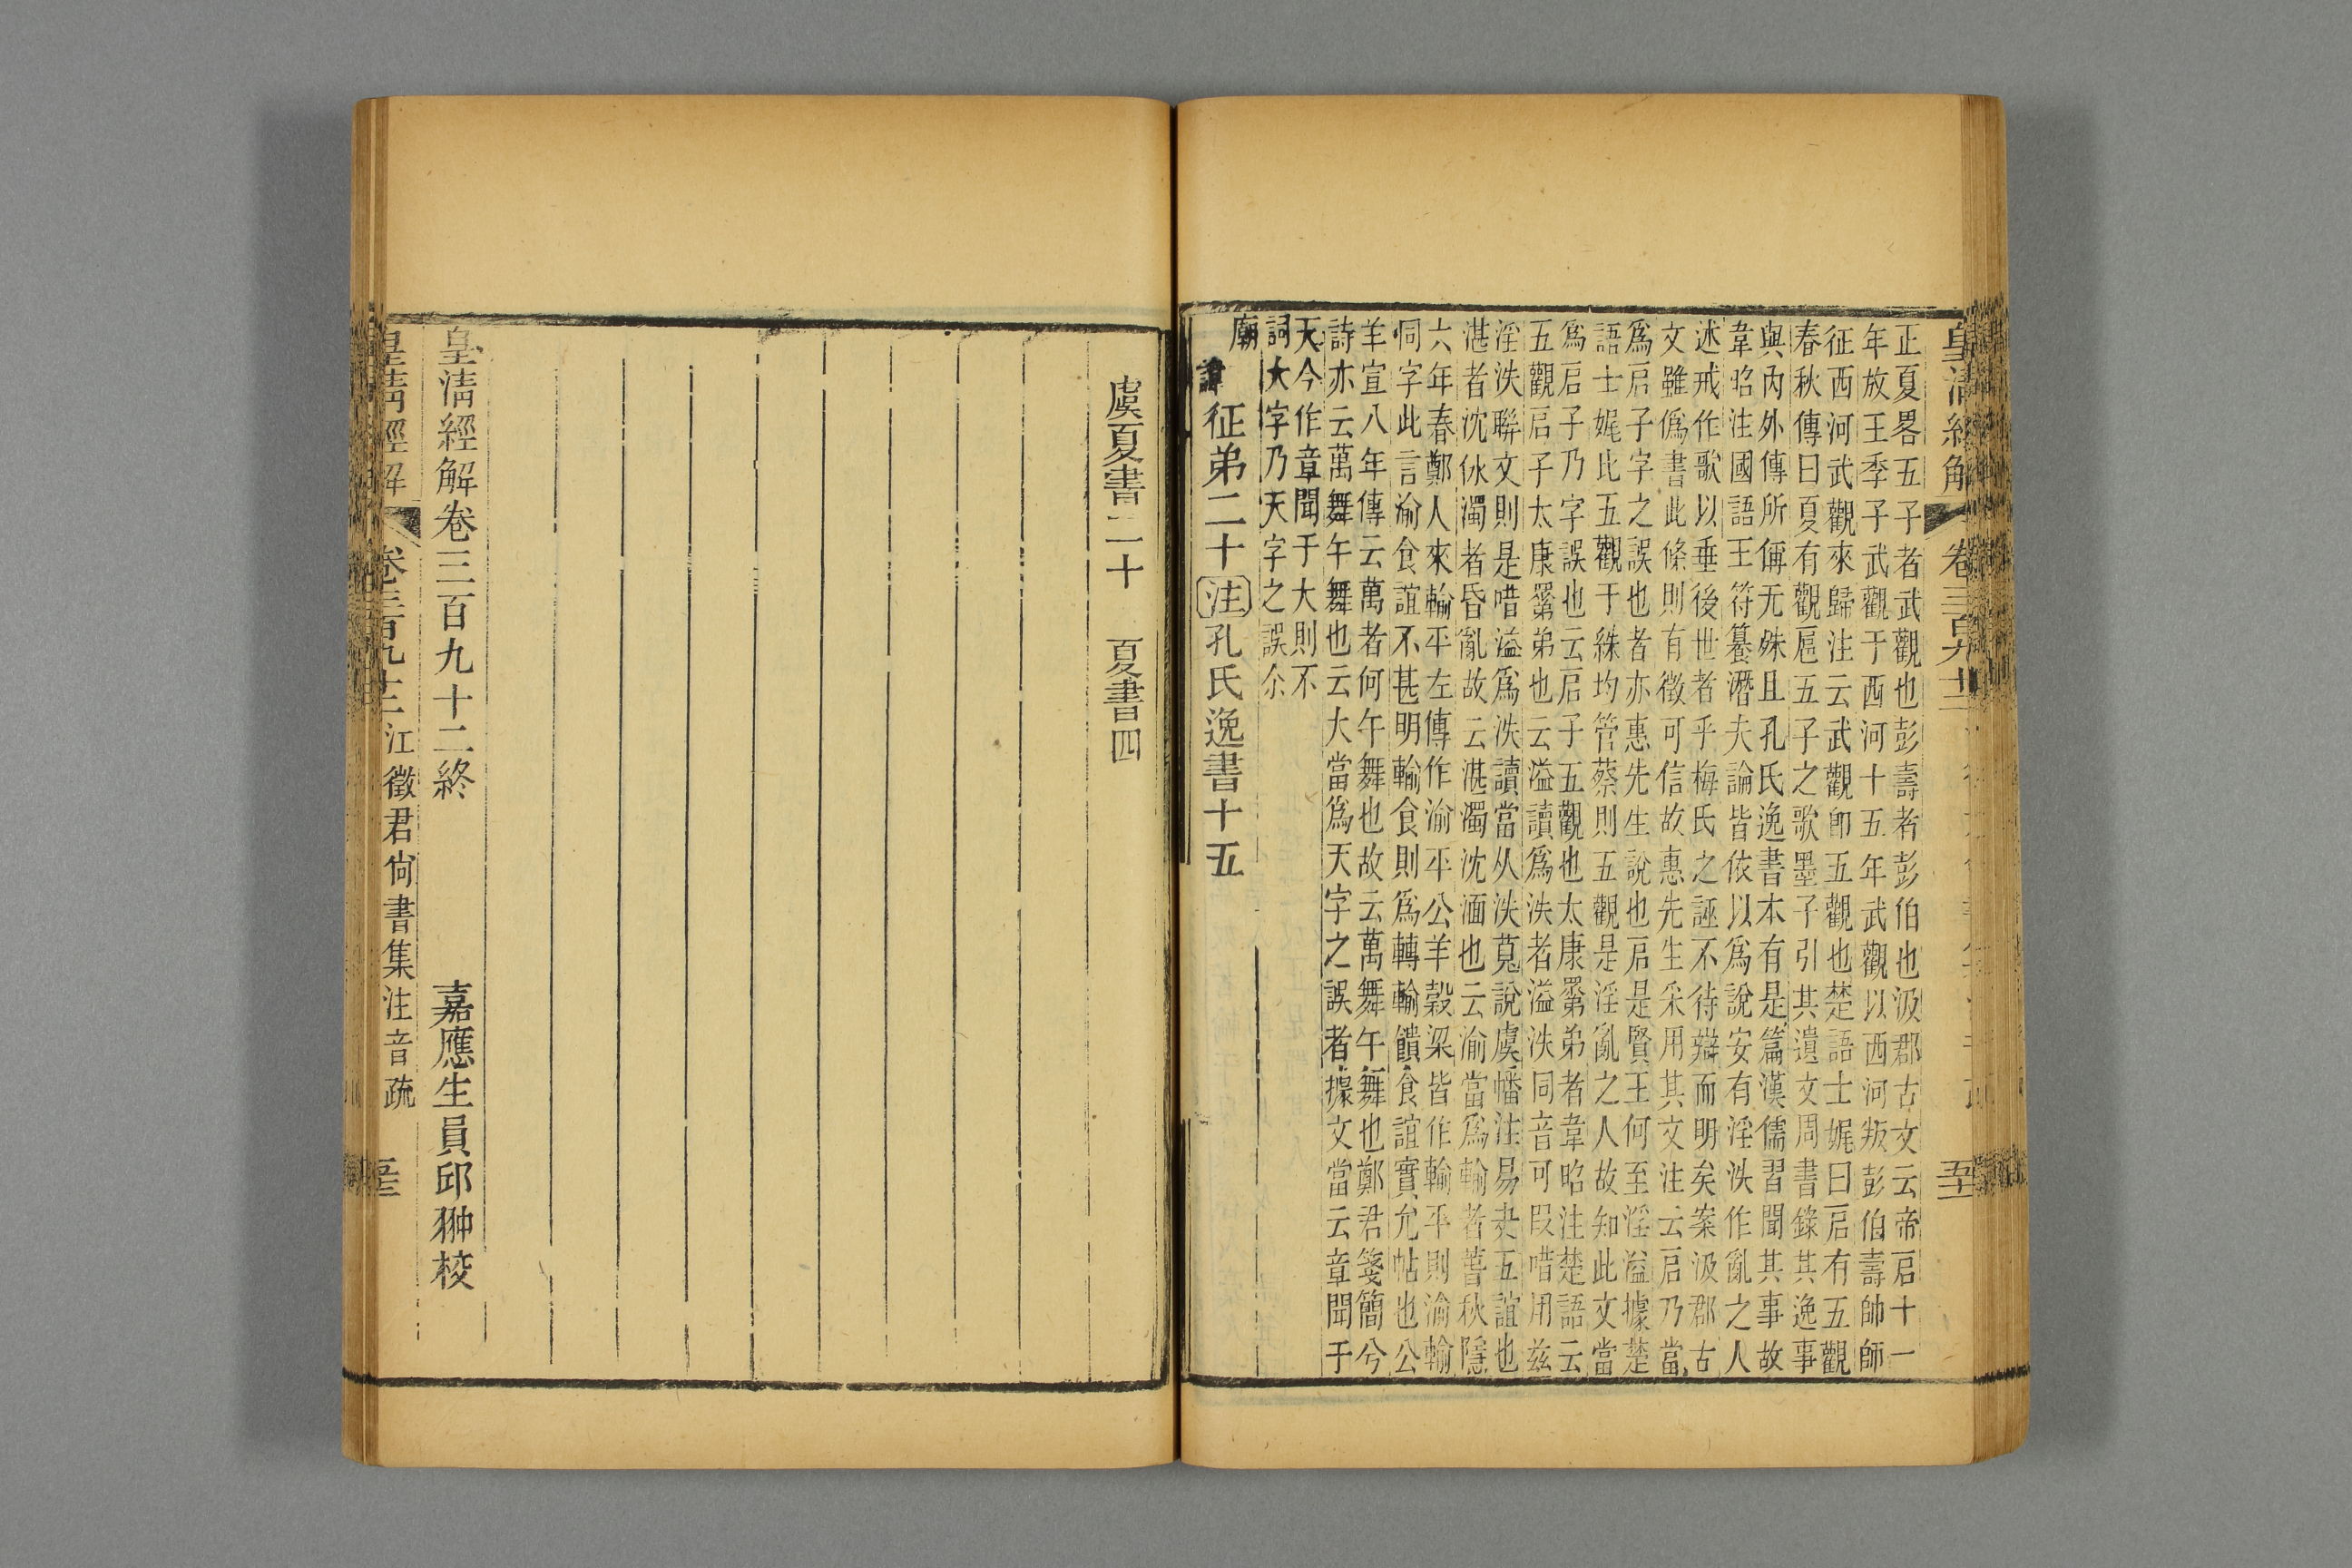 皇清經解 卷三百九十二 五十一
正夏畧五子者武觀也彭壽者彭伯也汲郡古文云帝启十一
年放王季子武觀于西河十五年武觀以西河叛彭伯壽帥師
征西河武觀來歸注云武觀卽五觀也楚語士娓曰启有五觀
春秋傳曰夏有觀扈五子之歌墨子引其遺文周書錄其逸事
與內外傳所偁无殊且孔氏逸書本有是篇漢儒習聞其事故
韋昭注國語王符纂潛夫論皆依以爲說安有淫泆作亂之人
述戒作歌以垂後世者乎梅氏之誣不待辯而明矣案汲郡古
文雖僞書此條則有徵可信故惠先生采用其文注云启乃當
爲启子字之誤也者亦惠先生說也启是賢王何至淫溢據楚
語士娓比五觀于絑均管蔡則五觀是淫亂之人故知此文當
爲启子乃字誤也云启子五觀也太康䍺弟者韋昭注楚語云
五觀启子太康䍺弟也云溢讀爲泆者溢泆同音可叚唶用兹
淫泆聯文則是唶溢爲泆讀當从泆莧說虞幡注易夬五誼也
湛者沈㲻濁者昏亂故云湛濁沈湎也云渝當爲輸者蓍秋隱
六年春鄭人來輸平左傳作渝平公羊穀梁皆作輸平則渝輸
同字此言渝食誼不甚明輸食則爲轉輸饋食誼實允帖也公
羊宣八年傳云萬者何午舞也故云萬舞午舞也鄭君箋簡兮
詩亦云萬舞午舞也云大當爲天字之誤者據文當云章聞于
天今作章聞于大則不
詞大字乃天字之誤尒
廟
諱征弟二十注孔氏逸書十五
虞夏書二十 夏書四
皇清經解卷三百九十二終 嘉應生員邱翀校
皇清經解 卷三百九十二江徵君尚書集注音疏 五十二